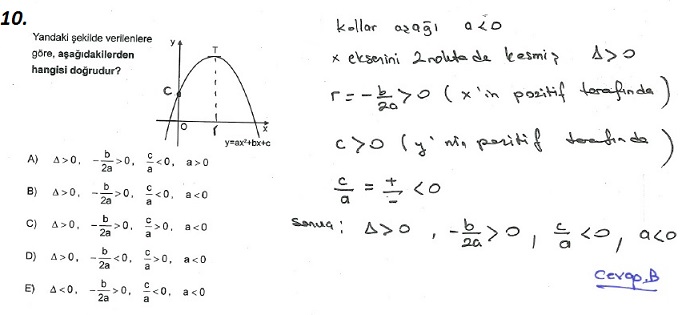 10.
Yandaki şekilde verilenlere
göre, aşağıdakilerden
hangisi doğrudur?
y
T
C
O
r
x
y=ax²+bx+c
A) Δ>0, -b/2a>0, c/a<0, a>0
B) Δ>0, -b/2a>0, c/a<0, a<0
C) Δ>0, -b/2a>0, c/a>0, a<0
D) Δ>0, -b/2a<0, c/a>0, a<0
E) Δ<0, -b/2a>0, c/a<0, a<0
kollar aşağı a<0
x eksenini 2 noktade kesmiş Δ>0
r=-b/2a>0 (x'in pozitif tarafında)
c>0 (y'nin pozitif tarafında)
c/a = +/- <0
Sonuç: Δ>0, -b/2a>0, c/a<0, a<0
Cevap B